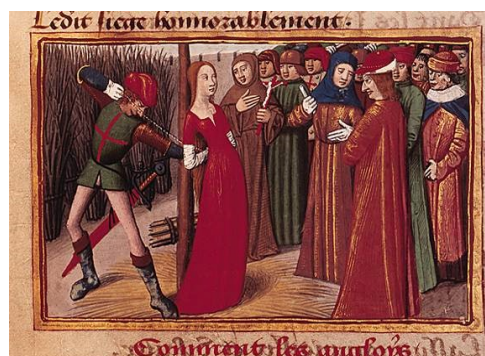 Ledit siege honnorablement.
Comment les angloys